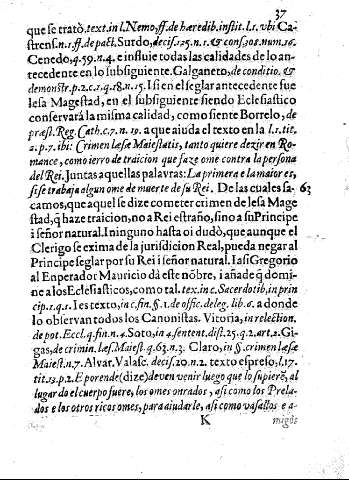 37
que se tratò, text. in l. Nemo, ff. de hæredib. instit. l. 1. vbi Ca-
strens. n. 1. ff. de pact. Surdo, decis. 125. n. 1. & cons. 308. num. 16.
Cenedo, q. 59. n. 4. e influie todas las calidades de lo an-
tecedente en lo subsiguiente. Galganeto, de conditio. &
demonstr. p. 2. c. 1. q. 18. n. 15. I si en el seglar antecedente fue
lesa Magestad, en el subsiguiente siendo Eclesiastico
conservarà la misma calidad, como siente Borrelo, de
præst. Reg. Cath. c. 7. n. 19. a que ayuda el texto en la l. 1. tit.
2. p. 7. ibi: Crimen læsæ Maiestatis, tanto quiere dezir en Ro-
mance, como ierro de traicion que faze ome contra la persona
del Rei. Juntas aquellas palabras: La primera e la maior es,
si se trabaja algun ome de muerte de su Rei. De las cuales sa-
63
camos, que aquel se dize cometer crimen de lesa Mage
stad, q̃ haze traicion, no a Rei estraño, sino a su Principe
i señor natural. I ninguno hasta oi dudò, que aunque el
Clerigo se exima de la jurisdicion Real, pueda negar al
Principe seglar por su Rei i señor natural. I asi Gregorio
al Enperador Mauricio dà este nõbre, i añade q̃ domi-
ne a los Eclesiasticos, como tal. tex. in c. Sacerdotib. in prin
cip. 1. q. 1. I es texto, in c. fin. §. 1. de offic. deleg. lib. 6. a donde
lo observan todos los Canonistas. Vitoria, in relection.
de pot. Eccl. q. fin. n. 4. Soto, in 4. sentent. dist. 25. q. 2. art. 2. Gi-
gas, de crimin. læs. Maiest. q. 63. n. 3. Claro, in §. crimen læsæ
Maiest. n. 7. Alvar. Valasc. decis. 20. n. 2. texto espreso, l. 17.
tit. 13. p. 2. E por ende (dize) deven venir luego que lo supierē, al
lugar do el cuerpo fuere, los omes onrados, asi como los Prela-
dos e los otros ricos omes, para aiudarle, asi como vasallos e a-
K
migos